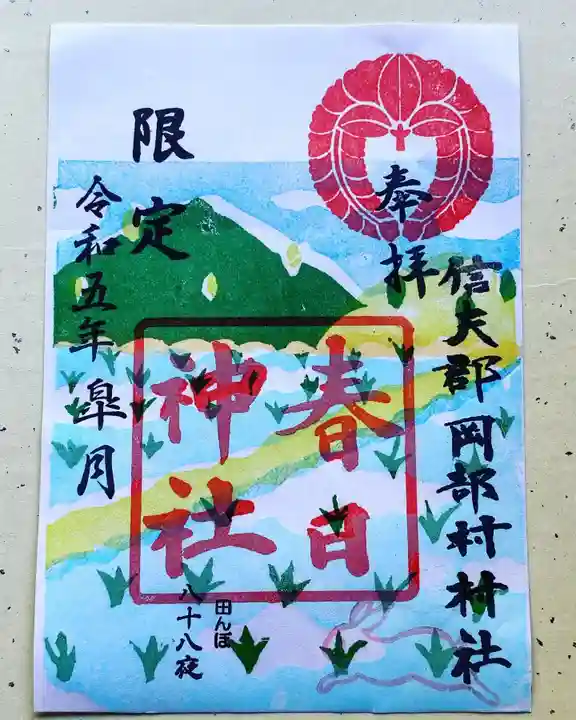 信夫郡岡部村村社
奉拝
春日
神社
限定
令和五年皐月
田んぼ
八十八夜